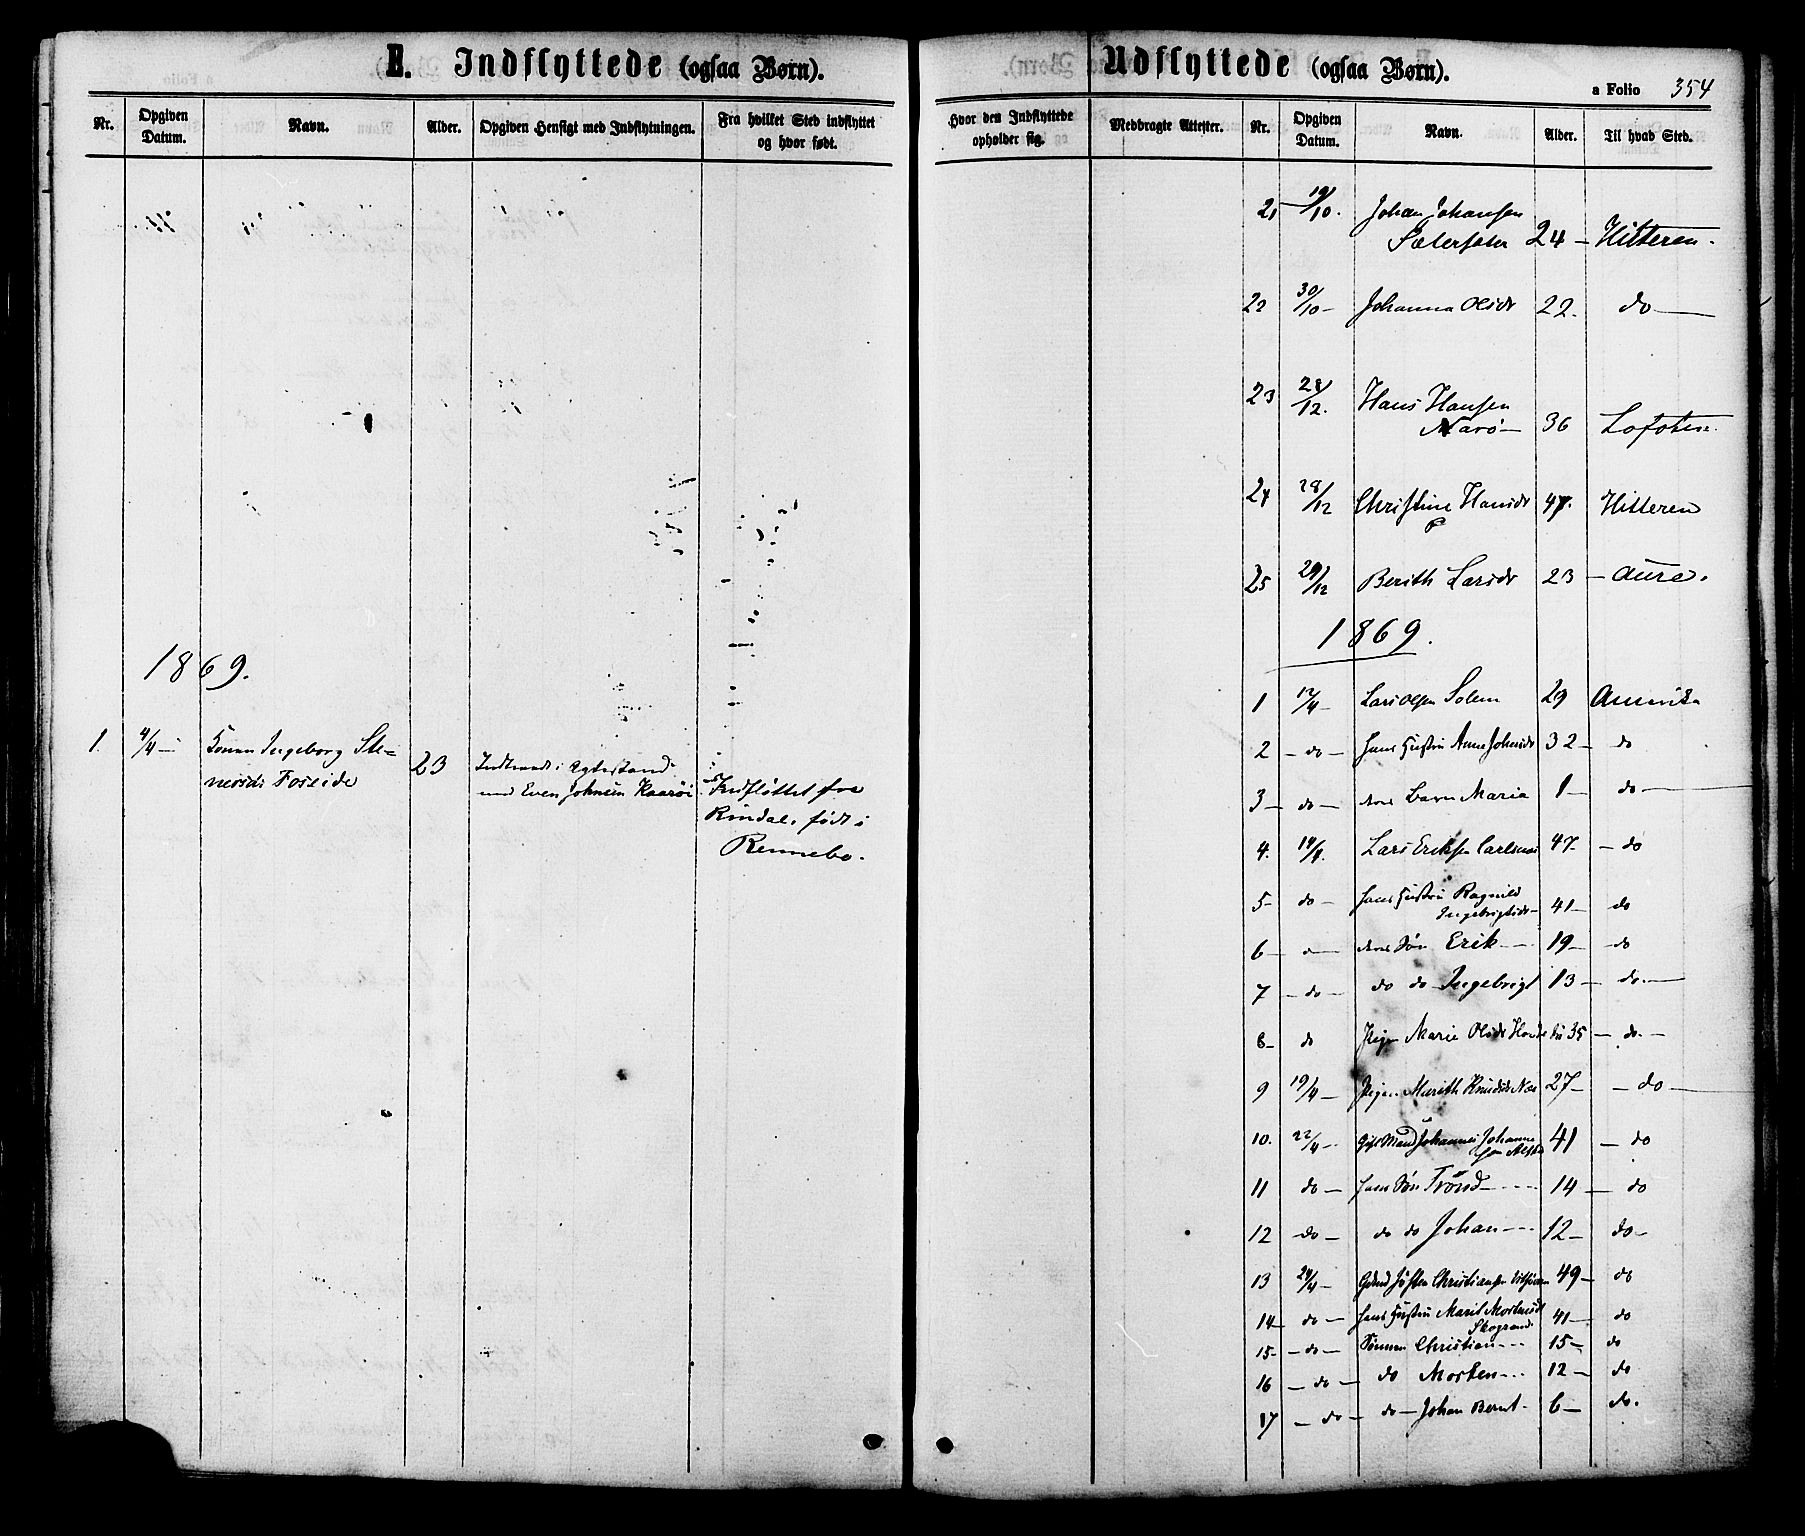 E. Indflyttede (ogsaa Børn).
Nr.
Opgiven
Datum.
Navn.
Alder.
Opgiven Hensigt med Indflytningen.
Fra hvilket Sted indflyttet
og hvor født.
1869.
1. 4/4 — Konen Ingeborg Ste=
nersdr Foseide 23
Indtraadt i Egtestand
med Even Johnsen Kaarøi
Indflyttet fra
Rindal. født i
Rennebo.
Udflyttede (ogsaa Børn).
a Folio 354
Hvor den Indflyttede
opholder sig.
Medbragte Attester.
Nr.
Opgiven
Datum.
Navn.
Alder.
Til hvad Sted.
21 19/10. Johan Johansen
Sætersæter 24 — Hitteren.
22 30/10 — Johanna Olsdr 22. do —
23 28/12. Hans Hansen
Narø — 36 Lofoten.
24 28/12 Christine Hansdr 47. Hitteren
25 29/12 Berith Larsdr 23 — Aure.
1869.
1 12/4 — Lars Olsen Solem 29 Amerika
2 — do — hans Hustru Anne Johnsdr 32 — do
3 — do — deres Barn Maria 1 — do —
4. 14/4. Lars Eriksen 47 — do
5 — do — hans Hustru Ragnild
Ingebrigtsdr — 41 — do
6 — deres Søn Erik — 19 — do
7 — do — do do Ingebrigt 13 — do —
8 — do Pigen Marie Olsdr 35 — do —
9 19/4 — Pigen Marith Knudsdr 27 — do —
10. 22/4 — Gift Mand Johannes Johanne
sen 41 — do
11 do — hans Søn Trond — 14 — do
12 — do — do do Johan — 12 — do —
13 24/4 — Christiansen 49 — do
14 — do — hans Hustru Marit Mortensdr
Skogrand 41 — do
15 — do — Sønnen Christian — 15 — do
16 — do — do Morten — 12 — do
17 — do — do — Johan Bernt — 6 — do.